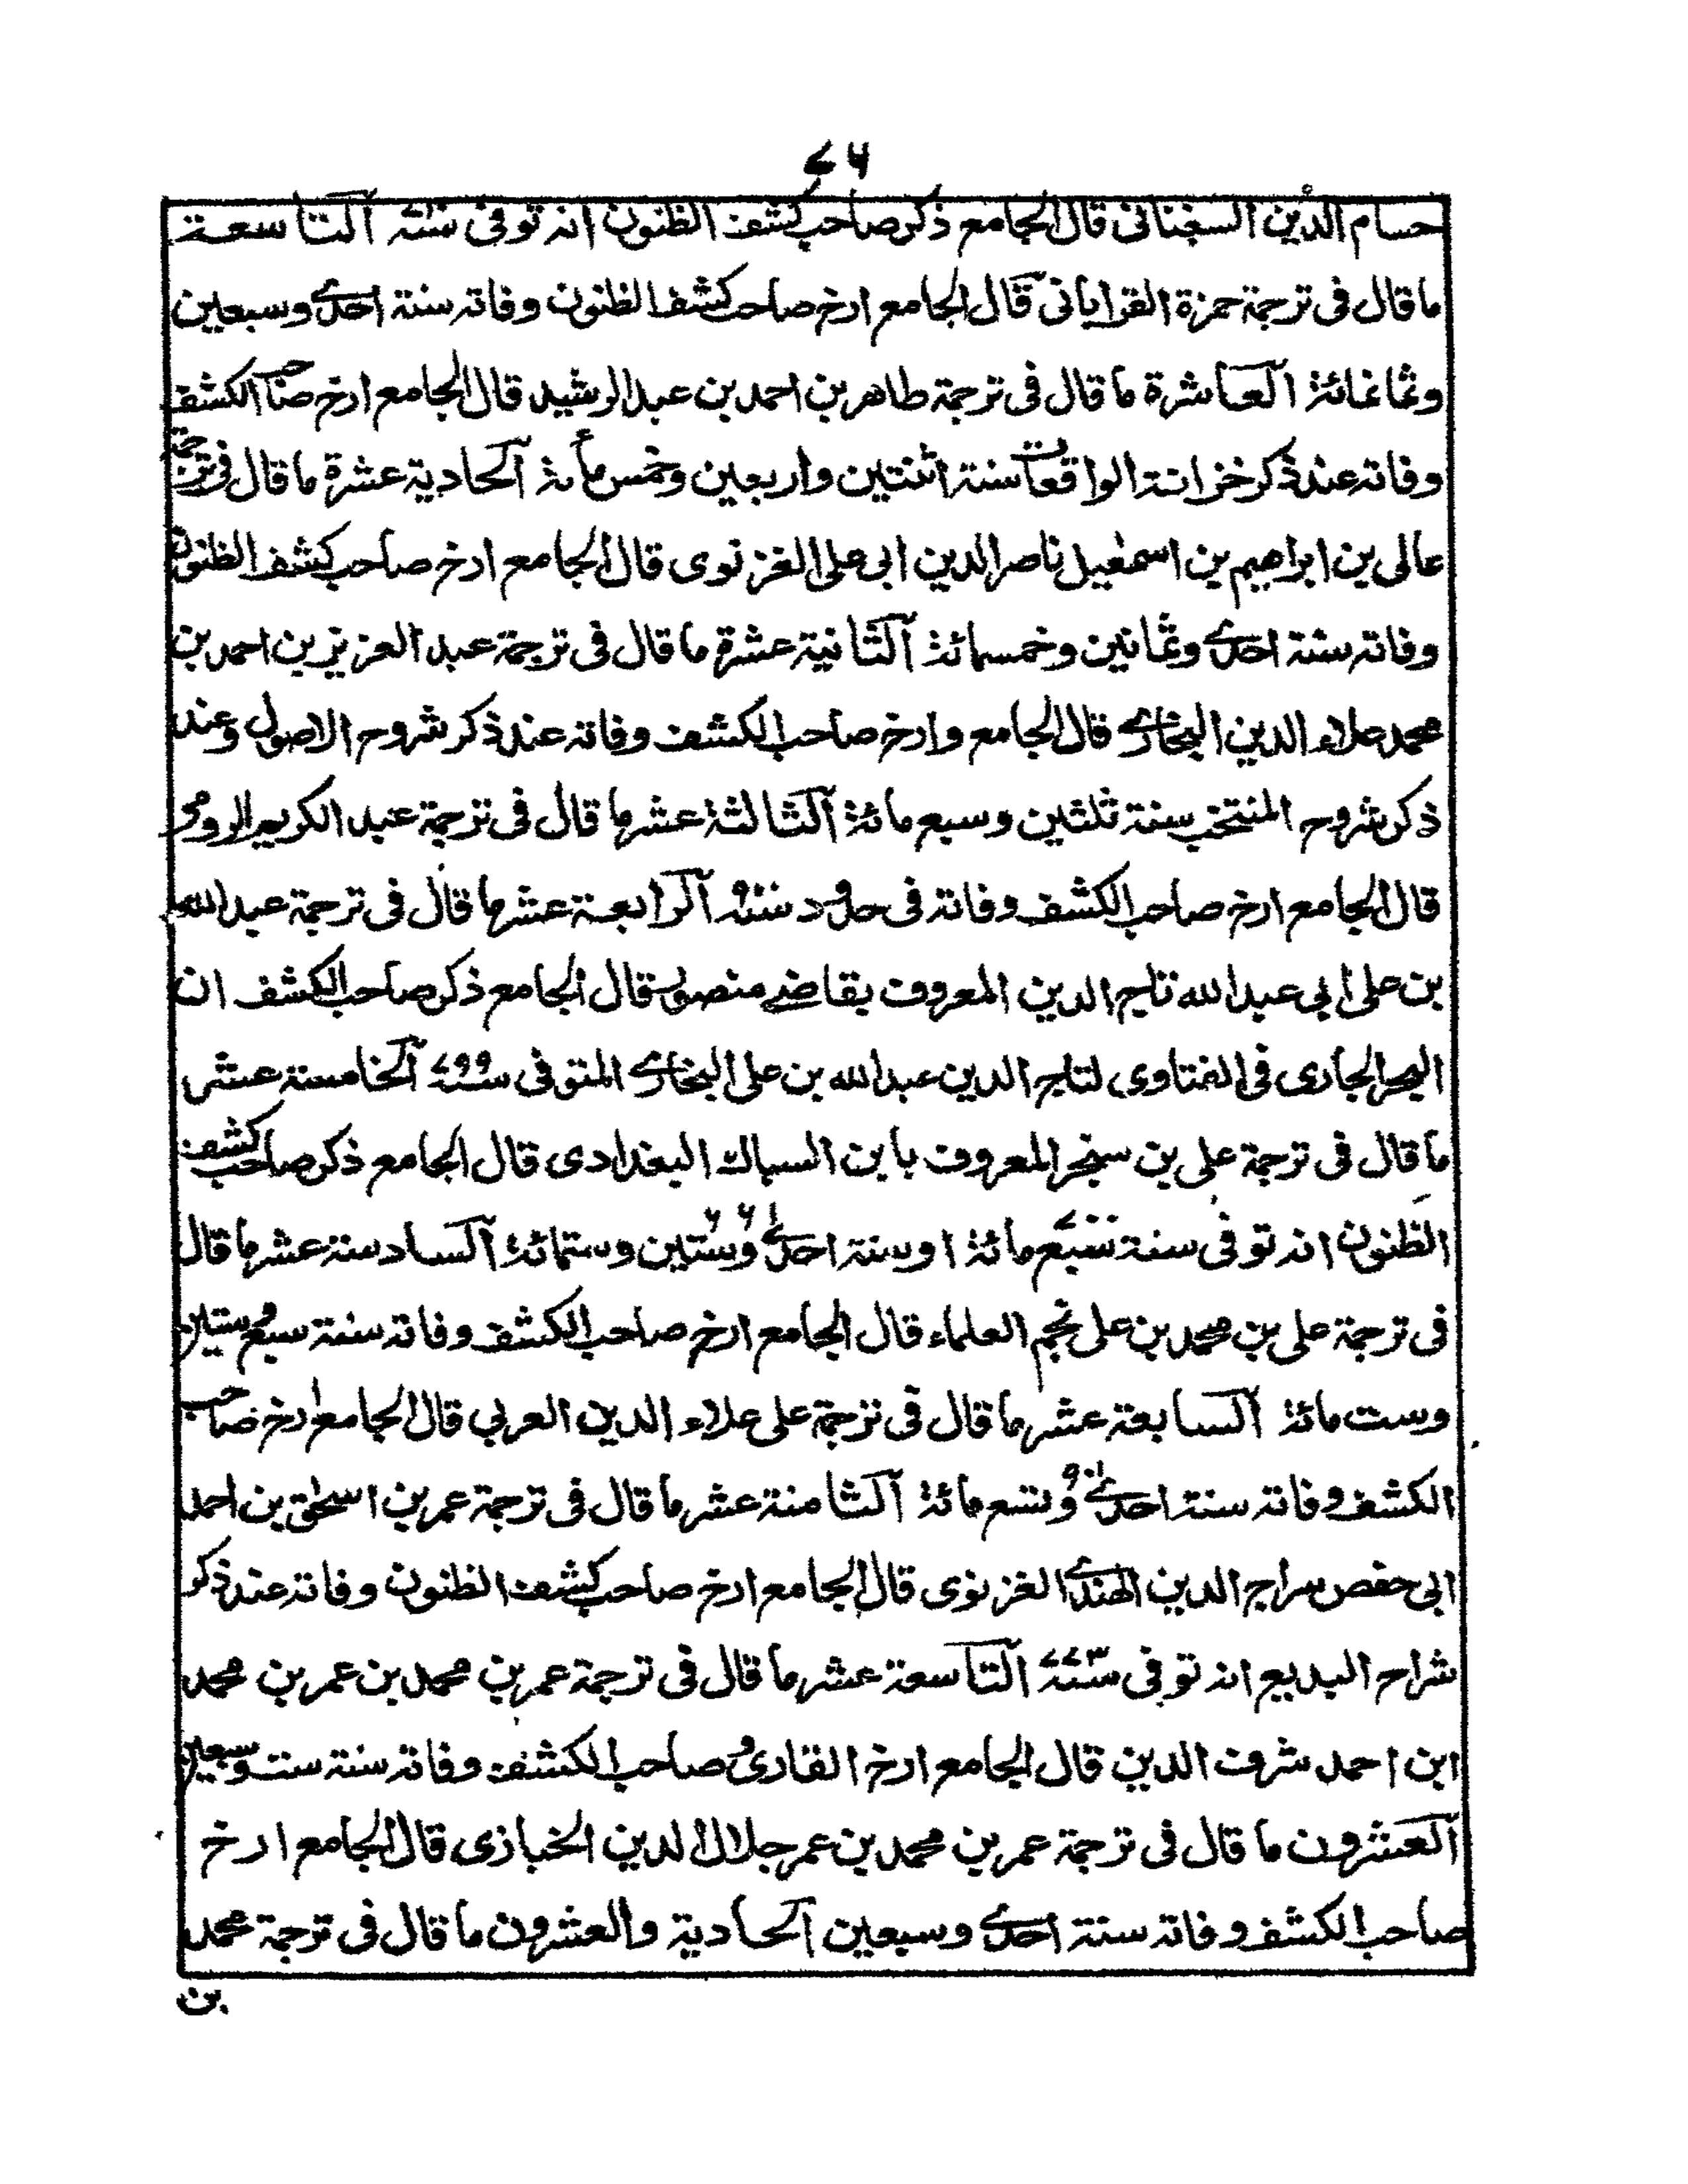 ٧٦
حسام الدين السغناقى قال الجامع ذكر صاحب كشف الظنون انه توفى سنة التاسعة
ما قال فى ترجمة حمزة القرابانى قال الجامع ارخ صاحب كشف الظنون وفاته سنة احدے وسبعين
وثمانمائة العاشرة ما قال فى ترجمة طاهر بن احمد بن عبد الرشيد قال الجامع ارخ صاحب الكشف
وفاته عند ذكر خزانة الواقعات سنة اثنتين واربعين وخمس مأئة الحادية عشرة ما قال فى ترجمة
عالى بن ابراهيم بن اسمعيل ناصر الدين ابى على الغزنوى قال الجامع ارخ صاحب كشف الظنون
وفاته سنة احدے وثمانين وخمسمائة الثانية عشرة ما قال فى ترجمة عبد العزيز بن احمد بن
محمد علاء الدين البخارے قال الجامع وارخ صاحب الكشف وفاته عند ذكر شروح الاصول وعند
ذكر شروح المنتخب سنة ثلثين وسبع مائة الثالثة عشر ما قال فى ترجمة عبد الكريم الرومى
قال الجامع ارخ صاحب الكشف وفاته فى حدود سنة الرابعة عشر ما قال فى ترجمة عبد الله
بن على ابى عبد الله تاج الدين المعروف بقاضے منصور قال الجامع ذكر صاحب الكشف ان
البحر الجارى فى الفتاوى لتاج الدين عبد الله بن على البخارے المتوفى سنة ٧٩٩ الخامسة عشر
ما قال فى ترجمة على بن سنجر المعروف بابن السباك البغدادى قال الجامع ذكر صاحب كشف
الظنون انه توفى سنة سبع مائة ٧٠٠ او سنة احدے وستين وستمائة ٦٦١ السادسة عشر ما قال
فى ترجمة على بن محمد بن على نجم العلماء قال الجامع ارخ صاحب الكشف وفاته سنة سبع وستين
وست مائة السابعة عشر ما قال فى ترجمة على علاء الدين العربى قال الجامع ارخ صاحب
الكشف وفاته سنة احدے وتسع مائة ٩٠١ الثامنة عشر ما قال فى ترجمة عمر بن اسحق بن احمد
ابى حفص سراج الدين الهندے الغزنوى قال الجامع ارخ صاحب كشف الظنون وفاته عند ذكر
شراح البديع انه توفى سنة ٧٧٣ التاسعة عشر ما قال فى ترجمة عمر بن محمد بن عمر بن محمد
ابن احمد شرف الدين قال الجامع ارخ القارى وصاحب الكشف وفاته سنة ست وسبعين
العشرون ما قال فى ترجمة عمر بن محمد بن عمر جلال الدين الخبازى قال الجامع ارخ
صاحب الكشف وفاته سنة احدے وسبعين الحادية والعشرون ما قال فى ترجمة محمد
بن